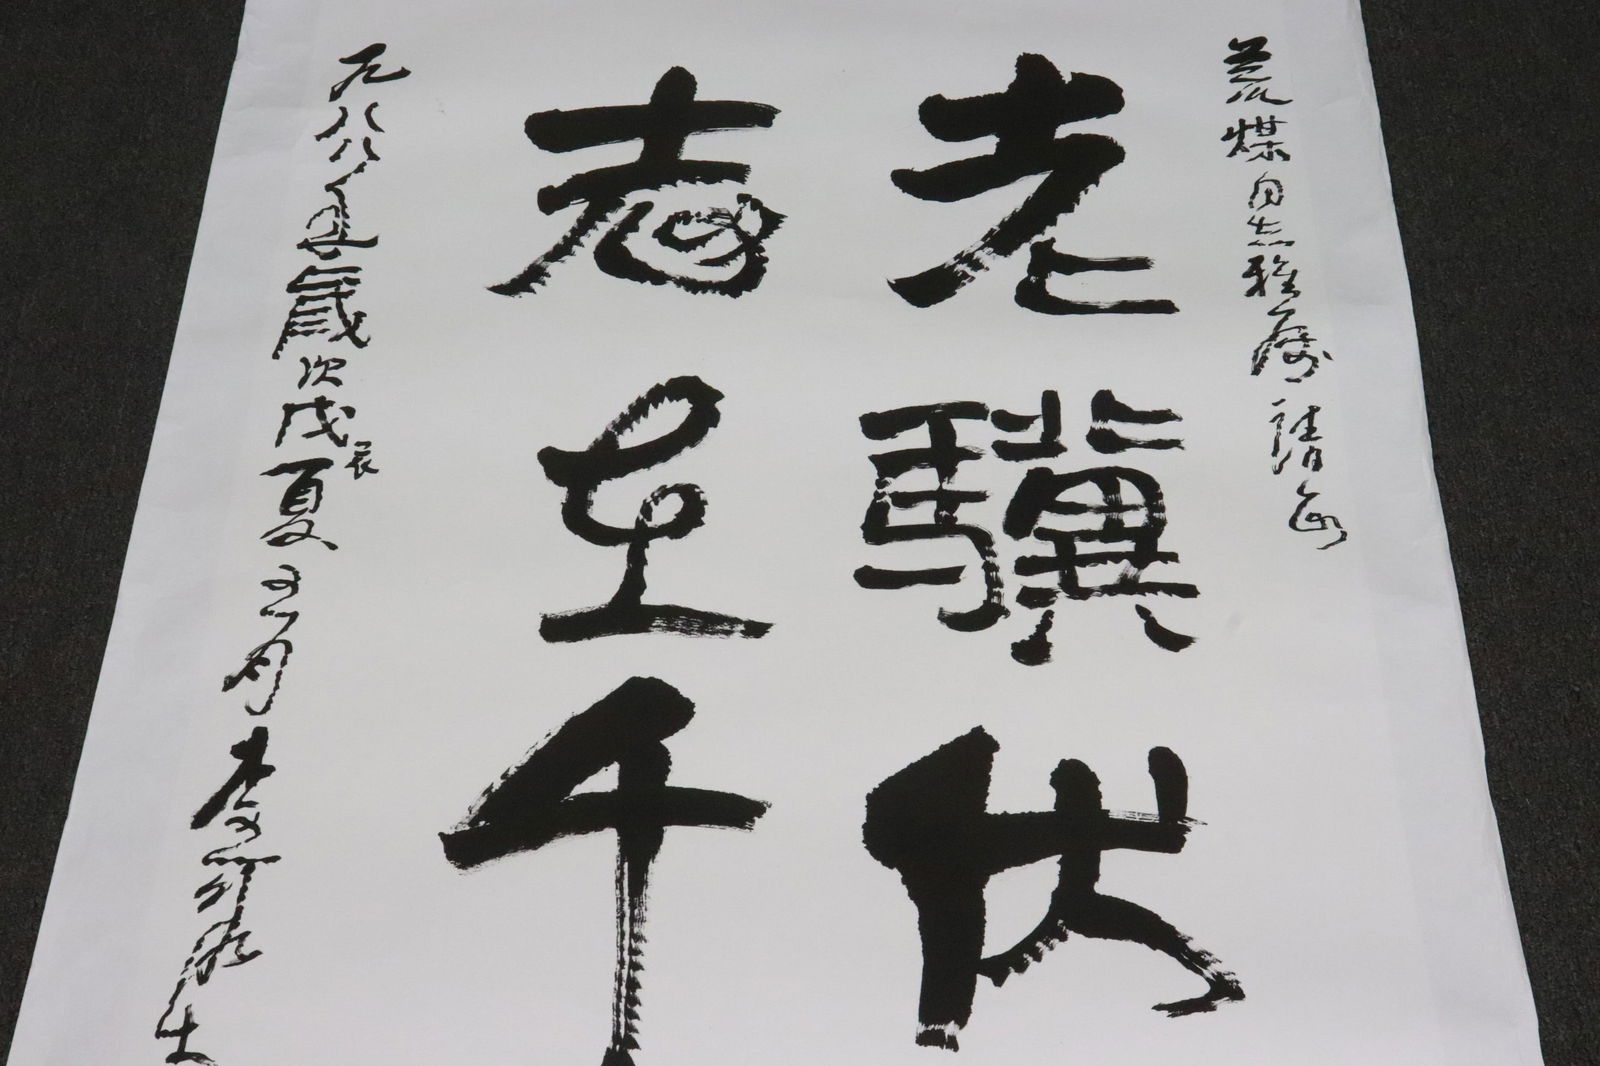 荒煤同志雅屬請
老驥伏
志在千
一九八八年歲次戊辰夏五月李